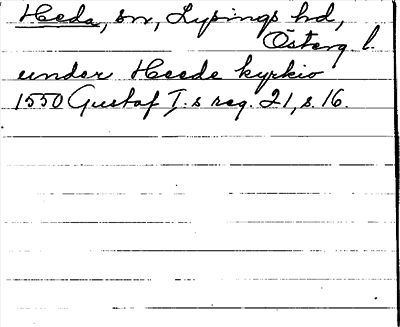 Heda, sn, Lysings hd,
Österg. l.
under Heede kyrkio
1550 Gustaf I:s reg. 21, s. 16.